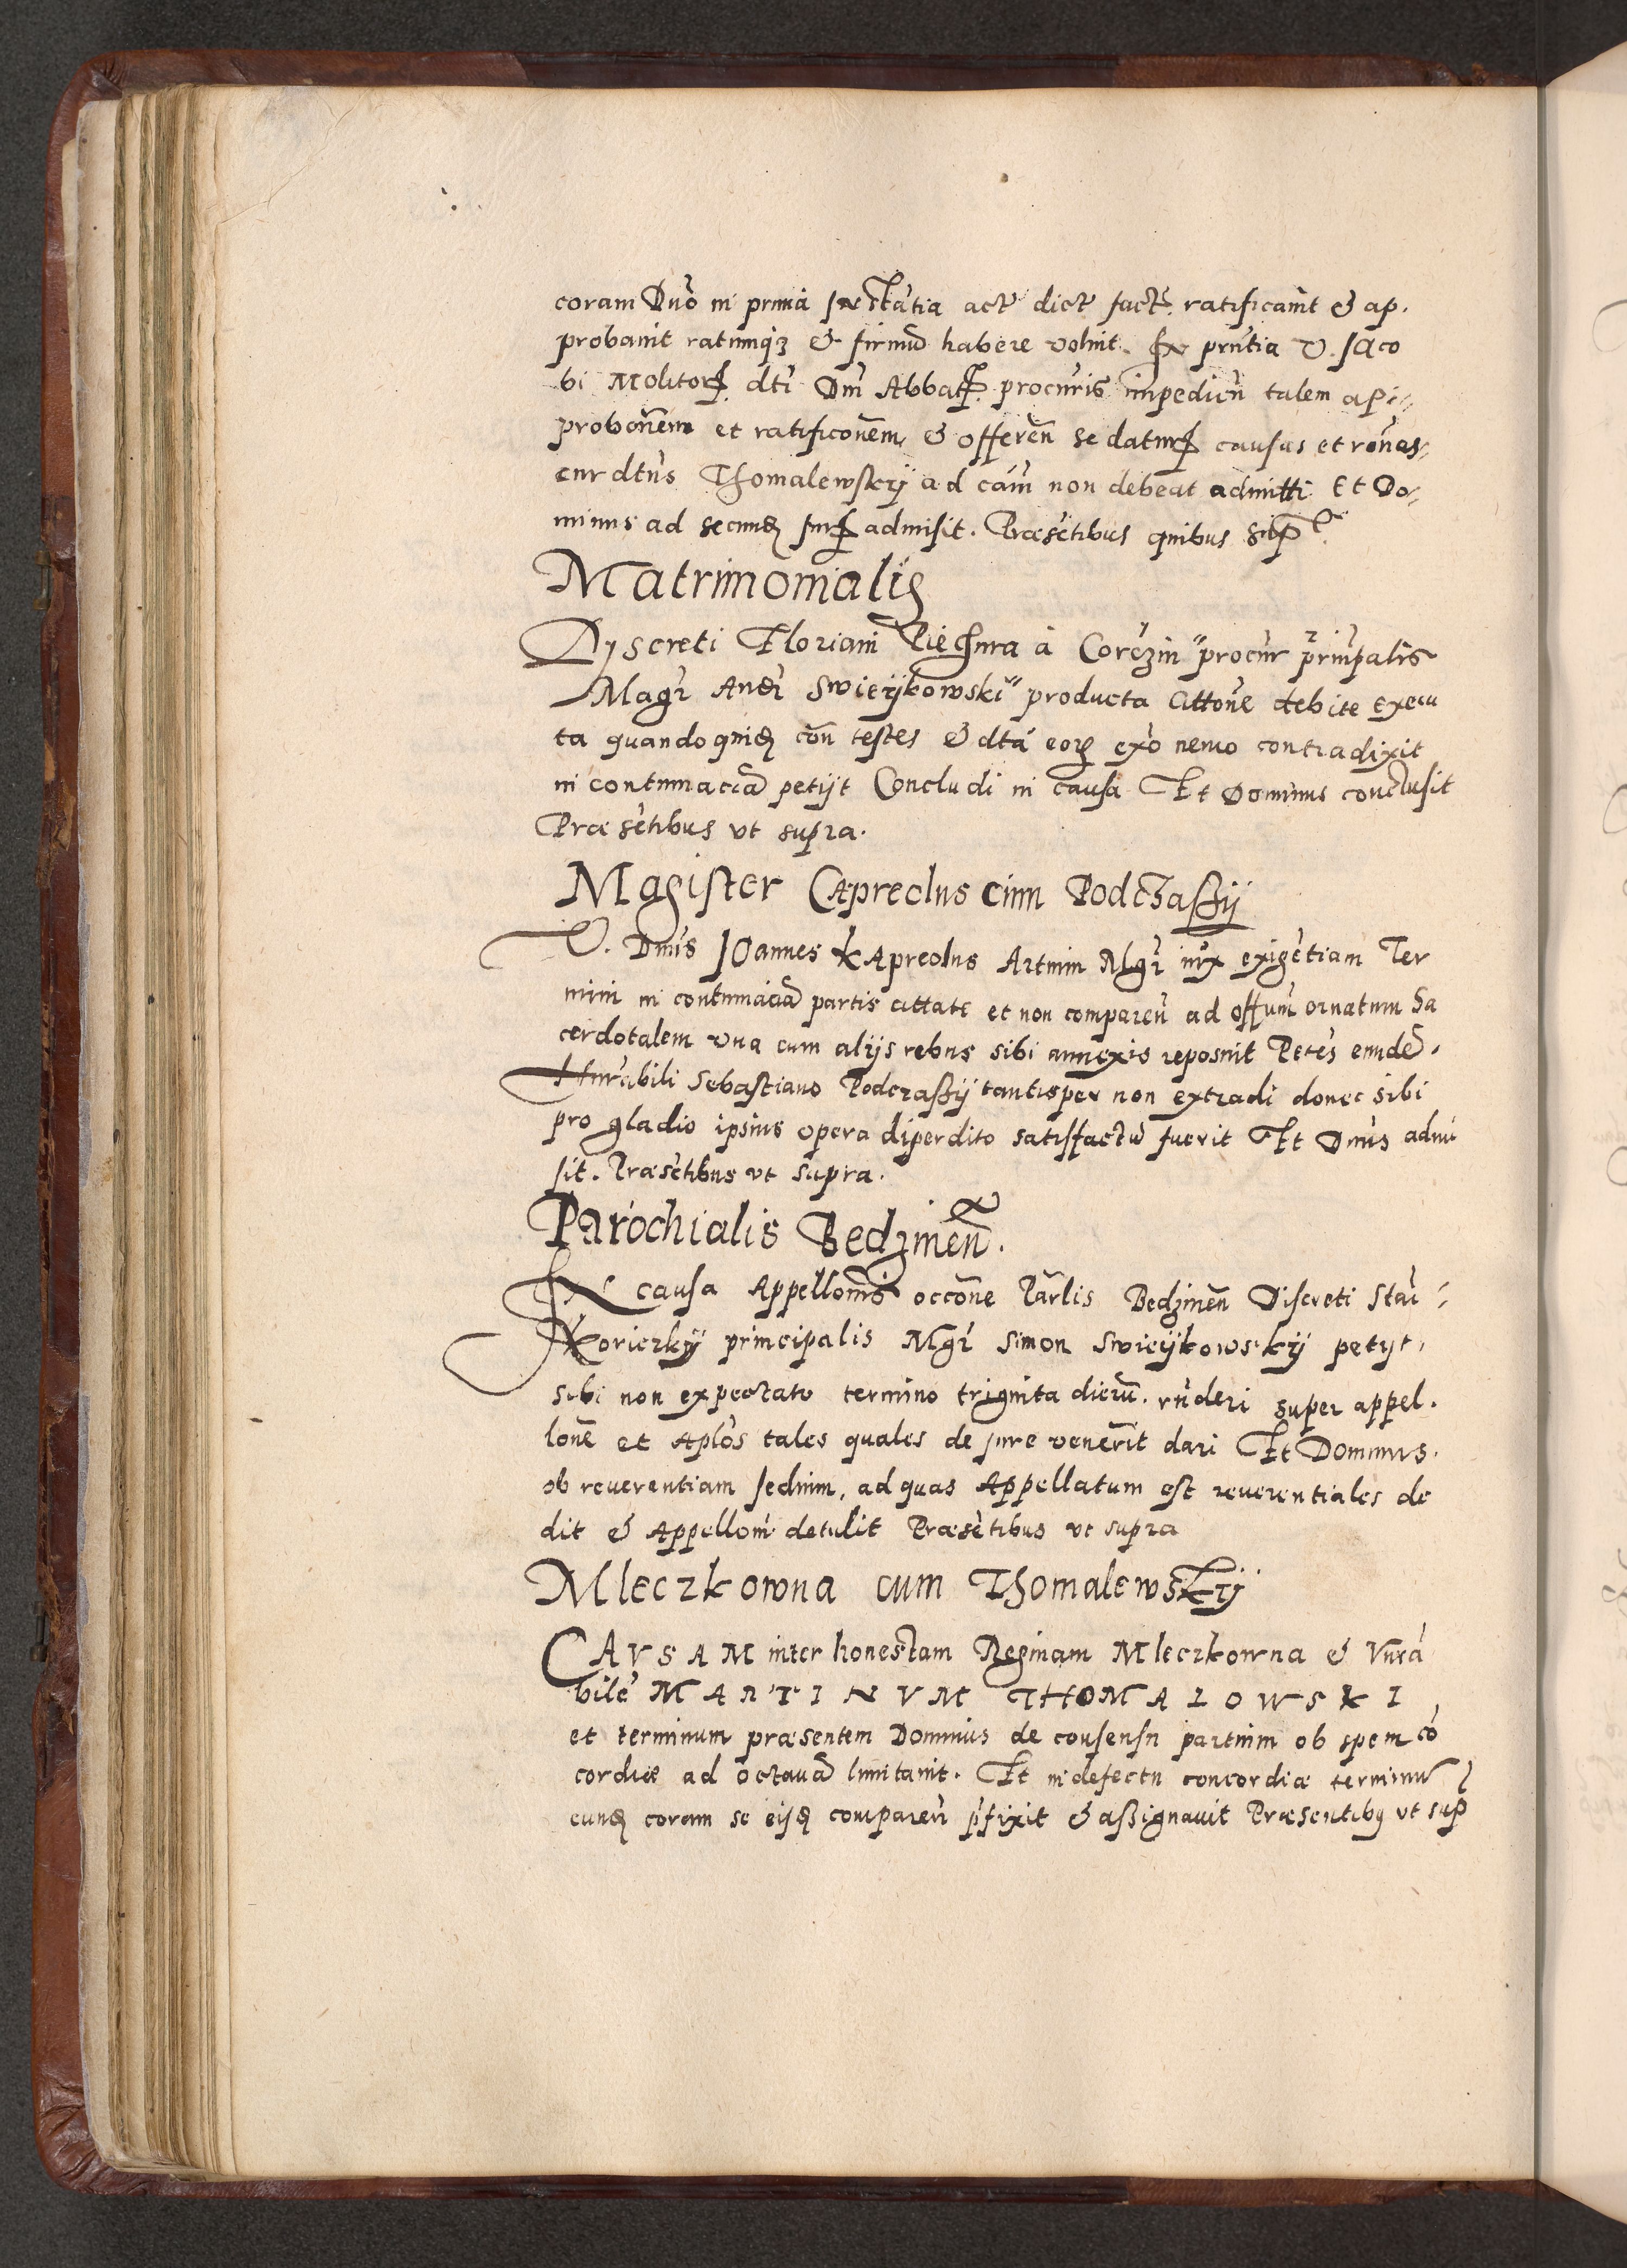 coram Dnō in primā Instātia acta dicta facta ratificavit & ap-
probavit ratumqz & firmū habere voluit. In prntia V. Jaco
bi Molitoris dti Dni Abbatis procuris impedien talem ap-
probōnem et ratificōnem, & offeren se daturū causas et rōnes,
cur dtus Thomalewskij ad cām non debeat admitti Et Do-
minus ad secund admisit. Præsētibus quibus sup
Matrimonialis
Dyscreti Floriani Piechura à Corczin procur principalis
Magr Andr Swieijkowski producta Cittōne debite execu
ta quandoquid cōn testes & dta eorz exō nemo contradixit
in contumaciā petijt Concludi in causa Et Dominus conclusit
Præsētibus vt supra.
Magister Capreolus cum Podczasßij
V. Dnus Joannes Kapreolus Artium Mgr iux exigētiam Ter
mini in contumaciā partis cittate et non comparen ad offum ornatum Sa
cerdotalem vna cum alijs rebus sibi annexis reposuit Petēs eundē.
Hurabili Sebastiano Podczasßij tantisper non extradi donec sibi
pro gladio ipsius opera diperdito satisfactū fuerit Et Dnus admi
sit. Præsētibus vt supra.
Parochialis Bedzinen.
In causa Appellonis occōne Parlis Bedzinen Discreti Stai
Koriczkij principalis Mgr Simon Swieijkowskij petijt,
sibi non expectato termino triginta dierū. rnderi super appel-
lonē et Aplos tales quales de jure venerit dari Et Dominus.
ob reverentiam sedium, ad quas Appellatum est reverentiales de
dit & Appellom detulit Præsētibus vt supra
Mleczkowna cum Thomalewskij
CAVSAM inter honestam Reginam Mleczkowna & Vnra
bile MARTINVM THOMALOWSKI
et terminum præsentem Dominus de consensu partium ob spem cō
cordiæ ad octavā limitavit. Et in defectu concordiæ terminū
eund coram se eisd comparen pfixit & aßignavit Præsentibq vt sup